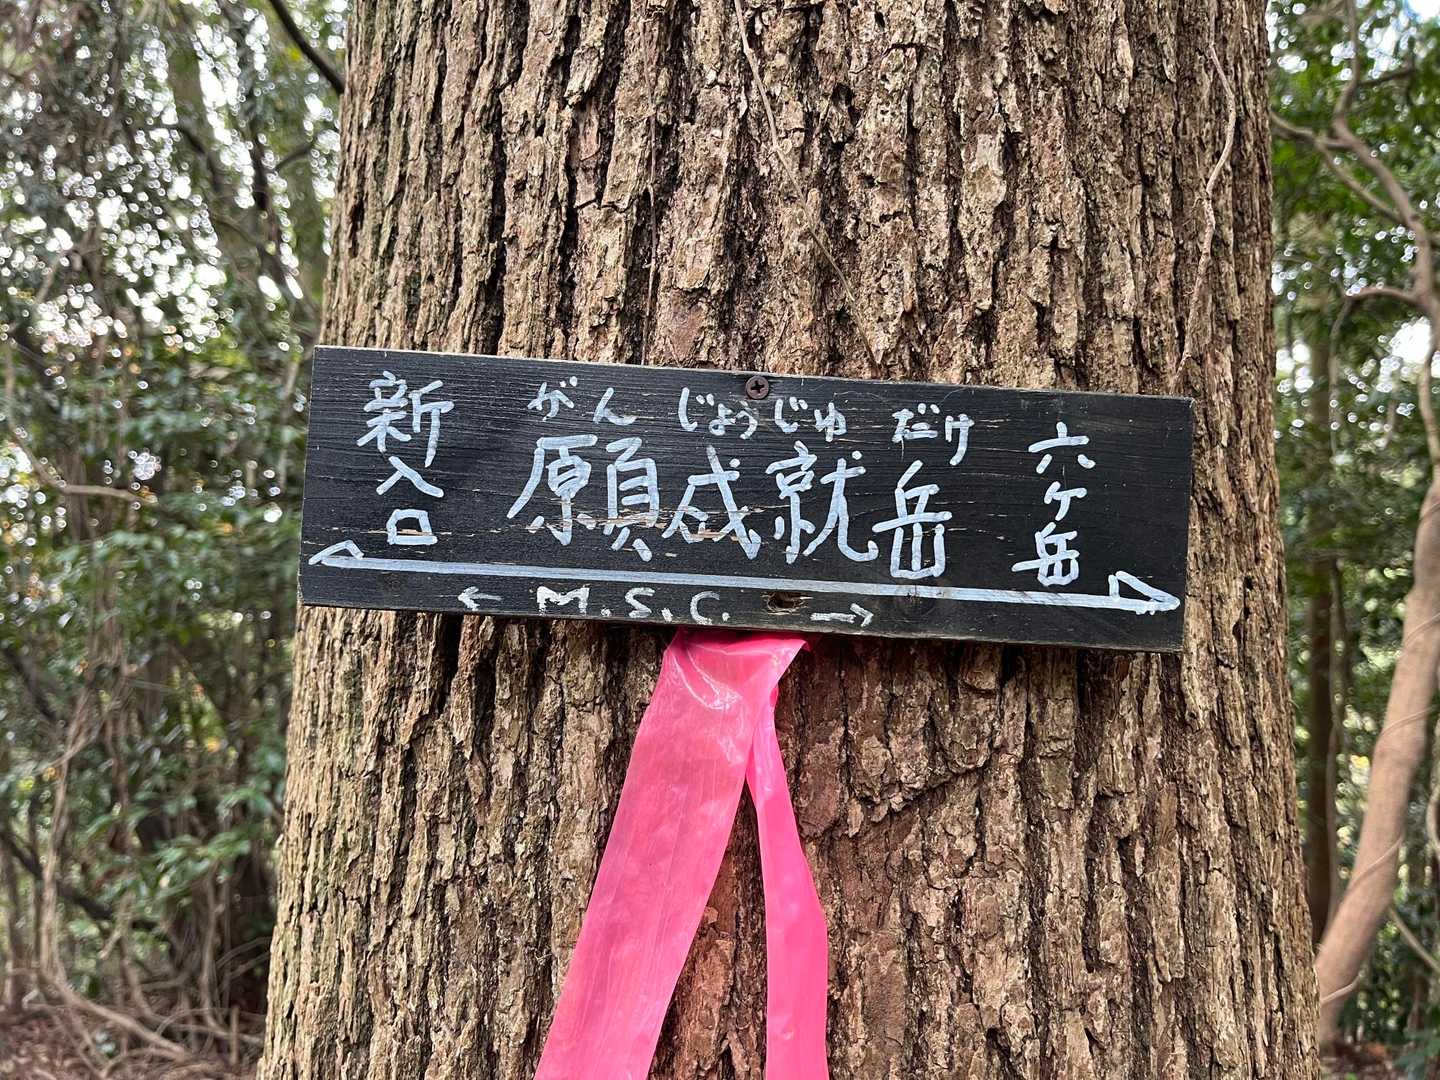 新入口
がんじょうじゅだけ
願成就岳
六ヶ岳
← M.S.C. →